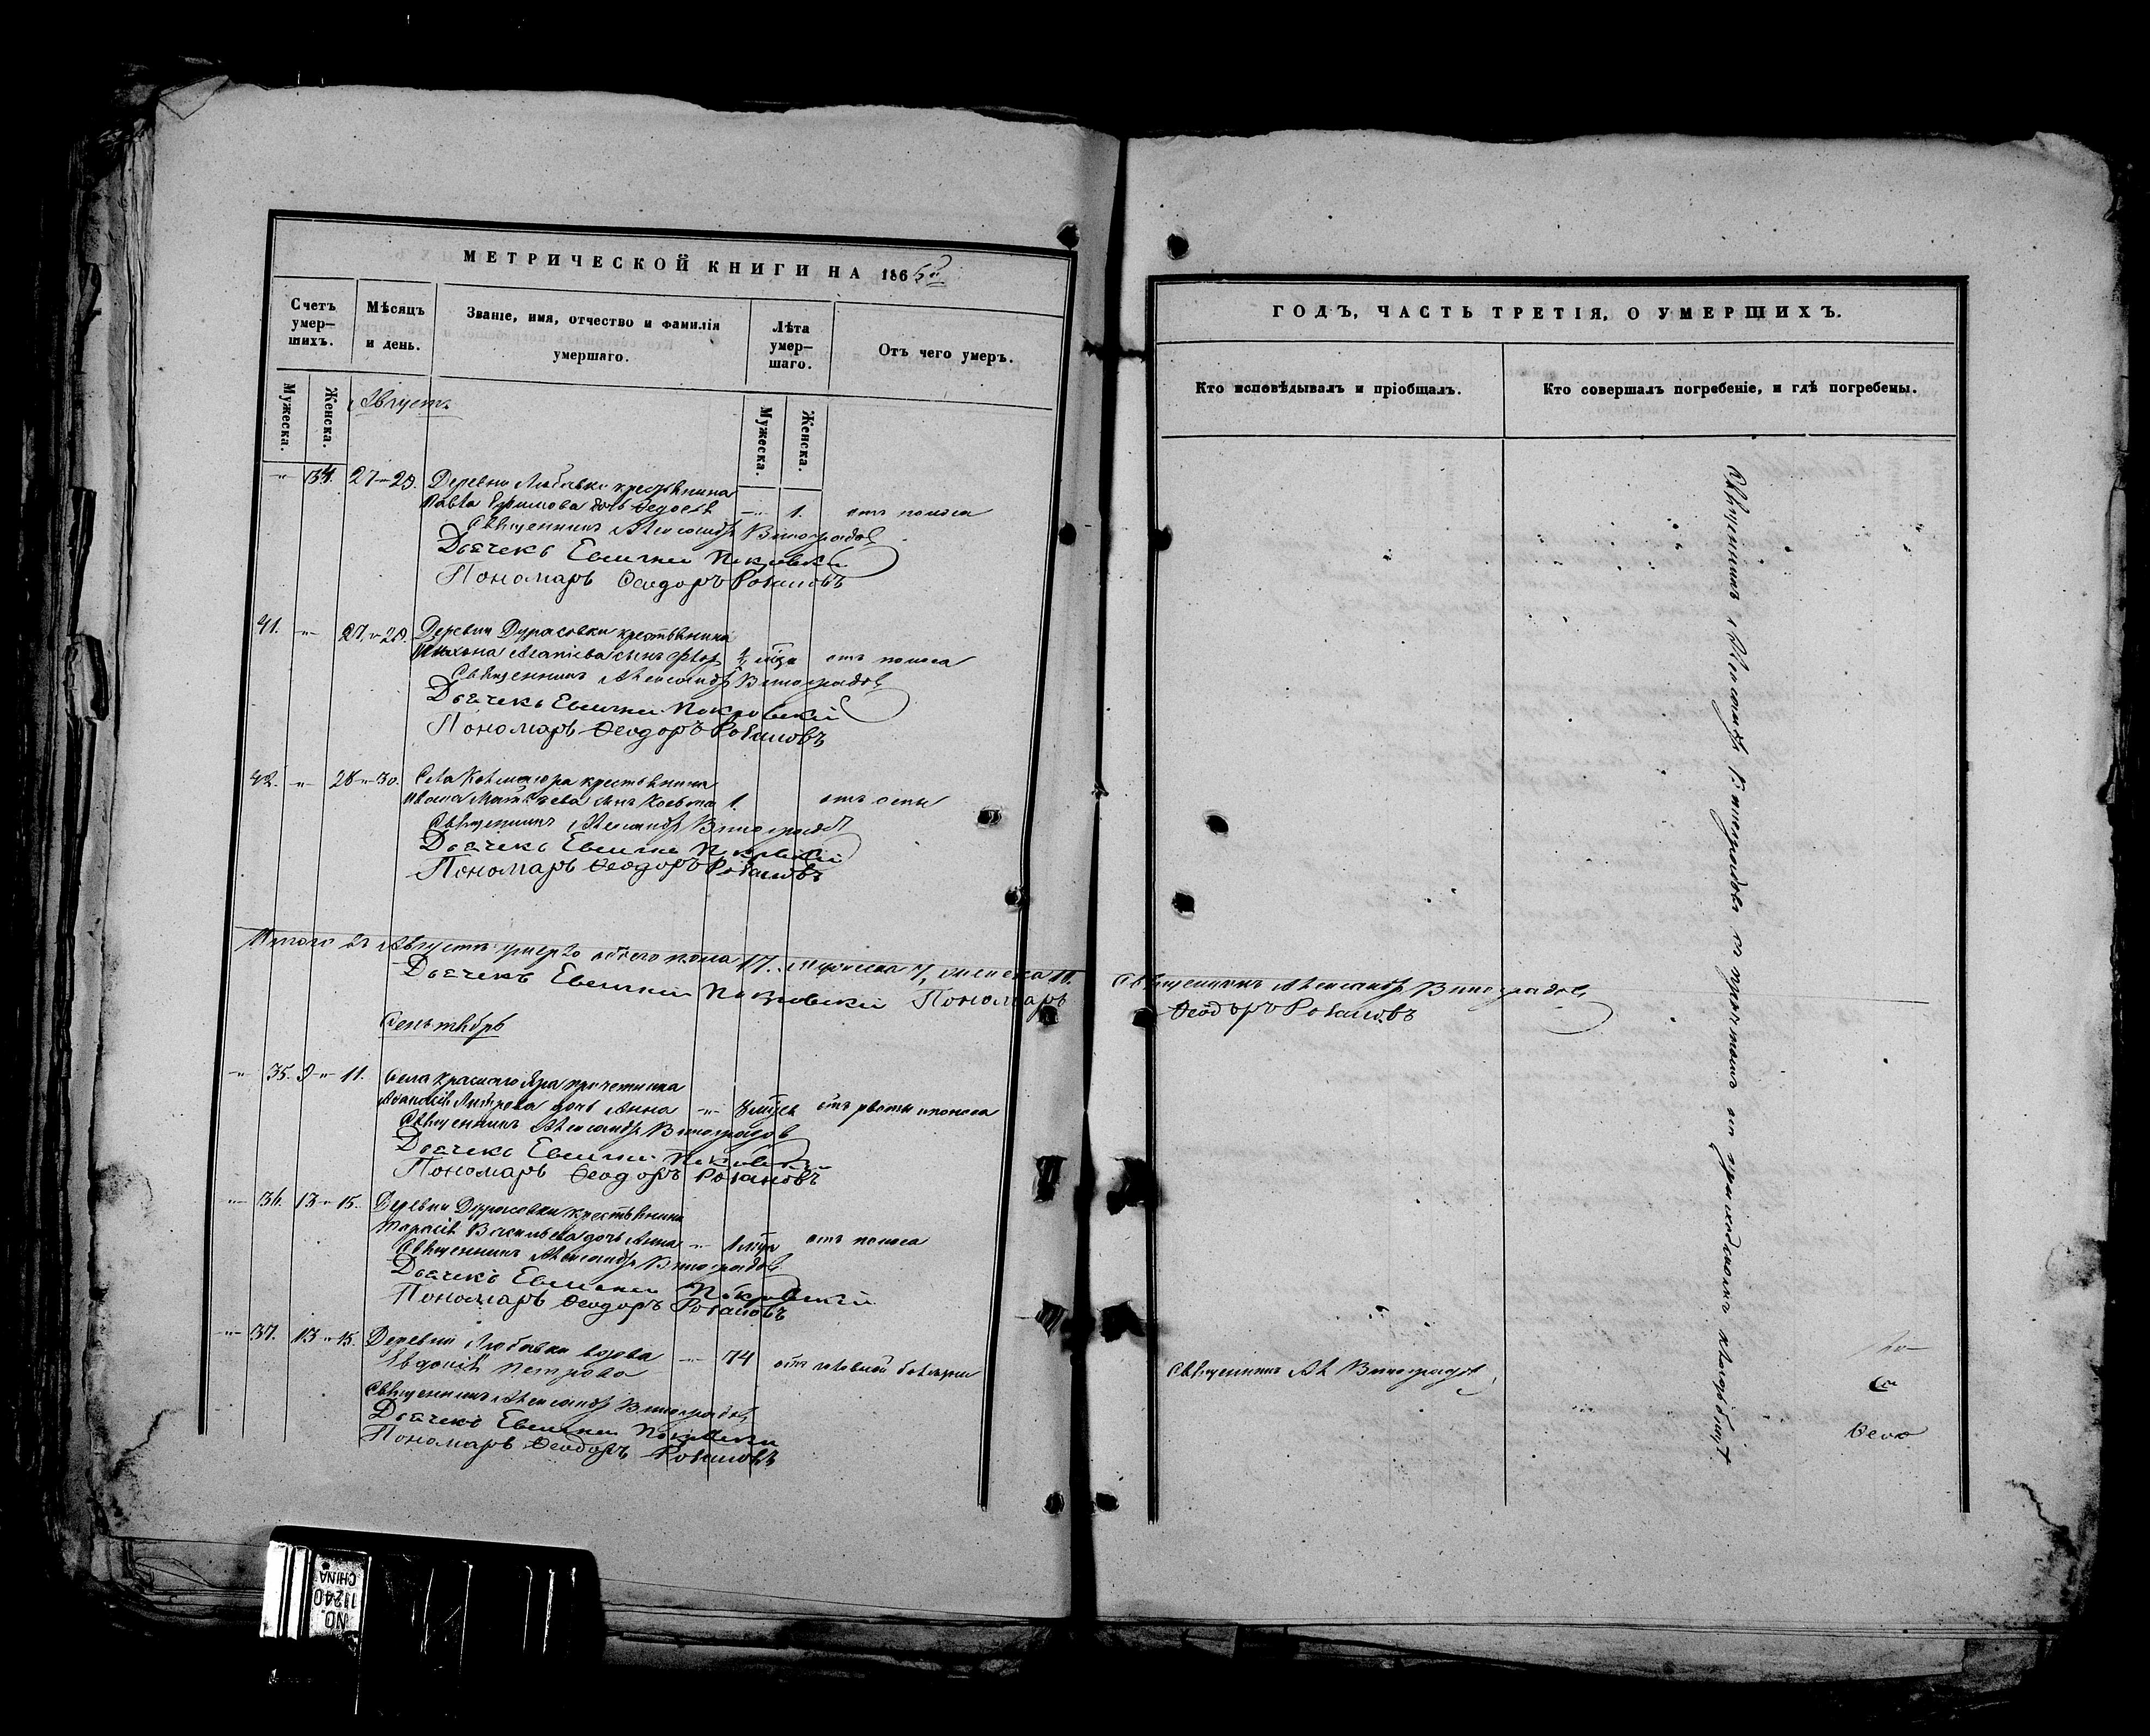 МЕТРИЧЕСКОЙ КНИГИ НА 1865й
Счетъ умер–шихъ.
Мѣсяцъ и день.
Званіе, имя, отчество и фамилія умершаго.
Лѣта умер–шаго.
Отъ чего умеръ.
Мужеска.
Женска.
Августъ.
Мужеска.
Женска.
-"- 34. 27-"-29. Деревни Любовки крестьянина
Павла Ефимова дочь Ѳедосья -"- 1. отъ поноса
Священникъ Александръ Виноградовъ
Дьячекъ Евгений Покровскій
Пономарь Ѳеодоръ Розановъ
41. -"- 27-"-29. Деревни Дурасовки крестьянина
сынъ отъ поноса
Священникъ Александръ Виноградовъ
Дьячекъ Евгений Покровскій
Пономарь Ѳеодоръ Розановъ
42. -"- 28-"-30. Села крестьянина
Ивана сынъ Козьма 1. отъ оспы
Священникъ Александръ Виноградовъ
Дьячекъ Евгений Покровскій
Пономарь Ѳеодоръ Розановъ
Итого въ Августѣ умерло обоего пола 17. мужеска 7, женска 10. Священникъ Александръ Виноградовъ
Дьячекъ Евгений Покровскій Пономарь Ѳеодоръ Розановъ
Сентябрь
-"- 35. 9-"-11. Села Краснаго Яра причетника
дочь Анна -"- отъ рвоты и поноса
Священникъ Александръ Виноградовъ
Дьячекъ Евгений Покровскій
Пономарь Ѳеодоръ Розановъ
-"- 36. 13-"-15. Деревни Дурасовки крестьянина
Тарасія Васильева дочь Анна -"- отъ поноса
Священникъ Александръ Виноградовъ
Дьячекъ Евгений Покровскій
Пономарь Ѳеодоръ Розановъ
-"- 37. 13-"-15. Деревни Любовки вдова
Евдокія Петрова -"- 74 отъ головной болезни
Священникъ Александръ Виноградовъ
Дьячекъ Евгений Покровскій
Пономарь Ѳеодоръ Розановъ
ГОДЪ, ЧАСТЬ ТРЕТІЯ, О УМЕРШИХЪ.
Кто исповѣдывалъ и пріобщалъ.
Кто совершалъ погребеніе, и гдѣ погребены.
Священникъ Александръ Виноградовъ съ причтомъ на приходскомъ кладбищѣ
Священникъ Ал Виноградовъ
NO.
11240
CHINA